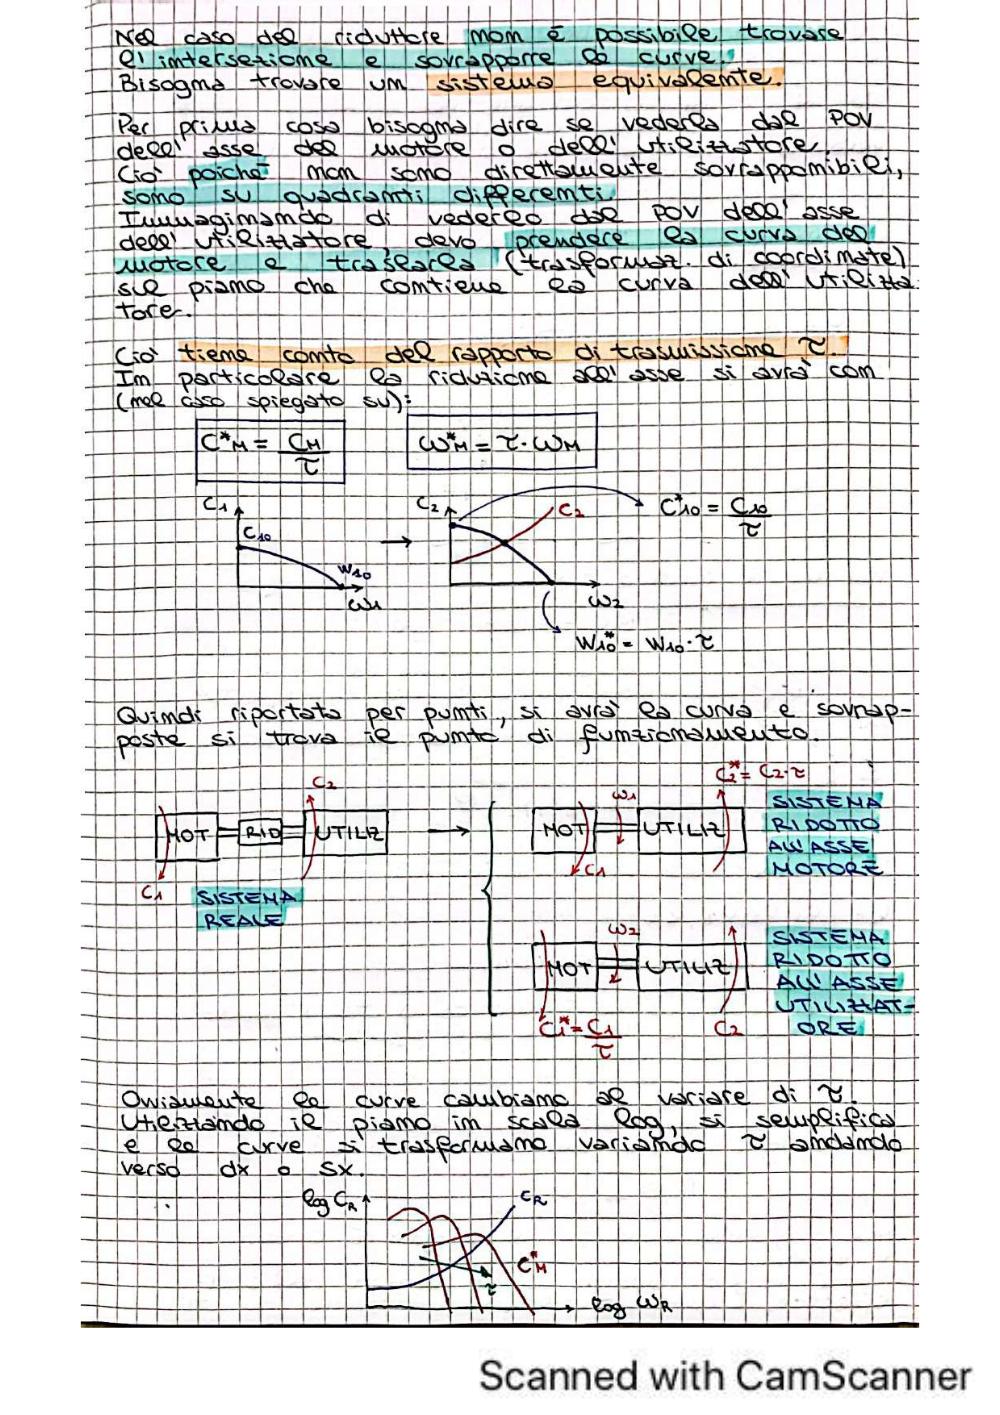 Nel caso del riduttore non è possibile trovare
l'intersezione e sovrapporre le curve.
Bisogna trovare un sistema equivalente.
Per prima cosa bisogna dire se vederla dal POV
dell'asse del motore o dell'utilizzatore.
Ciò poiché non sono direttamente sovrapponibili,
sono su quadranti differenti.
Immaginando di vederlo dal POV dell'asse
dell'utilizzatore, devo prendere la curva del
motore e traslarla (trasformaz. di coordinate)
sul piano che contiene la curva dell'utilizza
tore.
Ciò tiene conto del rapporto di trasmissione τ.
In particolare la riduzione all'asse si avrà con
(nel caso spiegato su):
C*M = CM/τ
W*M = τ·WM
C1
C10
W10
W1
C2
C2
W2
C*10 = C10/τ
W10* = W10·τ
Quindi riportata per punti, si avrà la curva e sovrap-
poste si trova il punto di funzionamento.
C2
MOT
RID
UTILIZ
C1
SISTEMA
REALE
C2* = C2·τ
W1
MOT
UTILIZ
C1
SISTEMA
RIDOTTO
ALL'ASSE
MOTORE
W2
MOT
UTILIZ
C1* = C1/τ
C2
SISTEMA
RIDOTTO
ALL'ASSE
UTILIZZAT-
ORE
Ovviamente le curve cambiano al variare di τ.
Utilizzando il piano in scala log, si semplifica
e le curve si trasformano variando τ andando
verso dx o sx.
log CR
CR
C*M
τ
log WR
Scanned with CamScanner